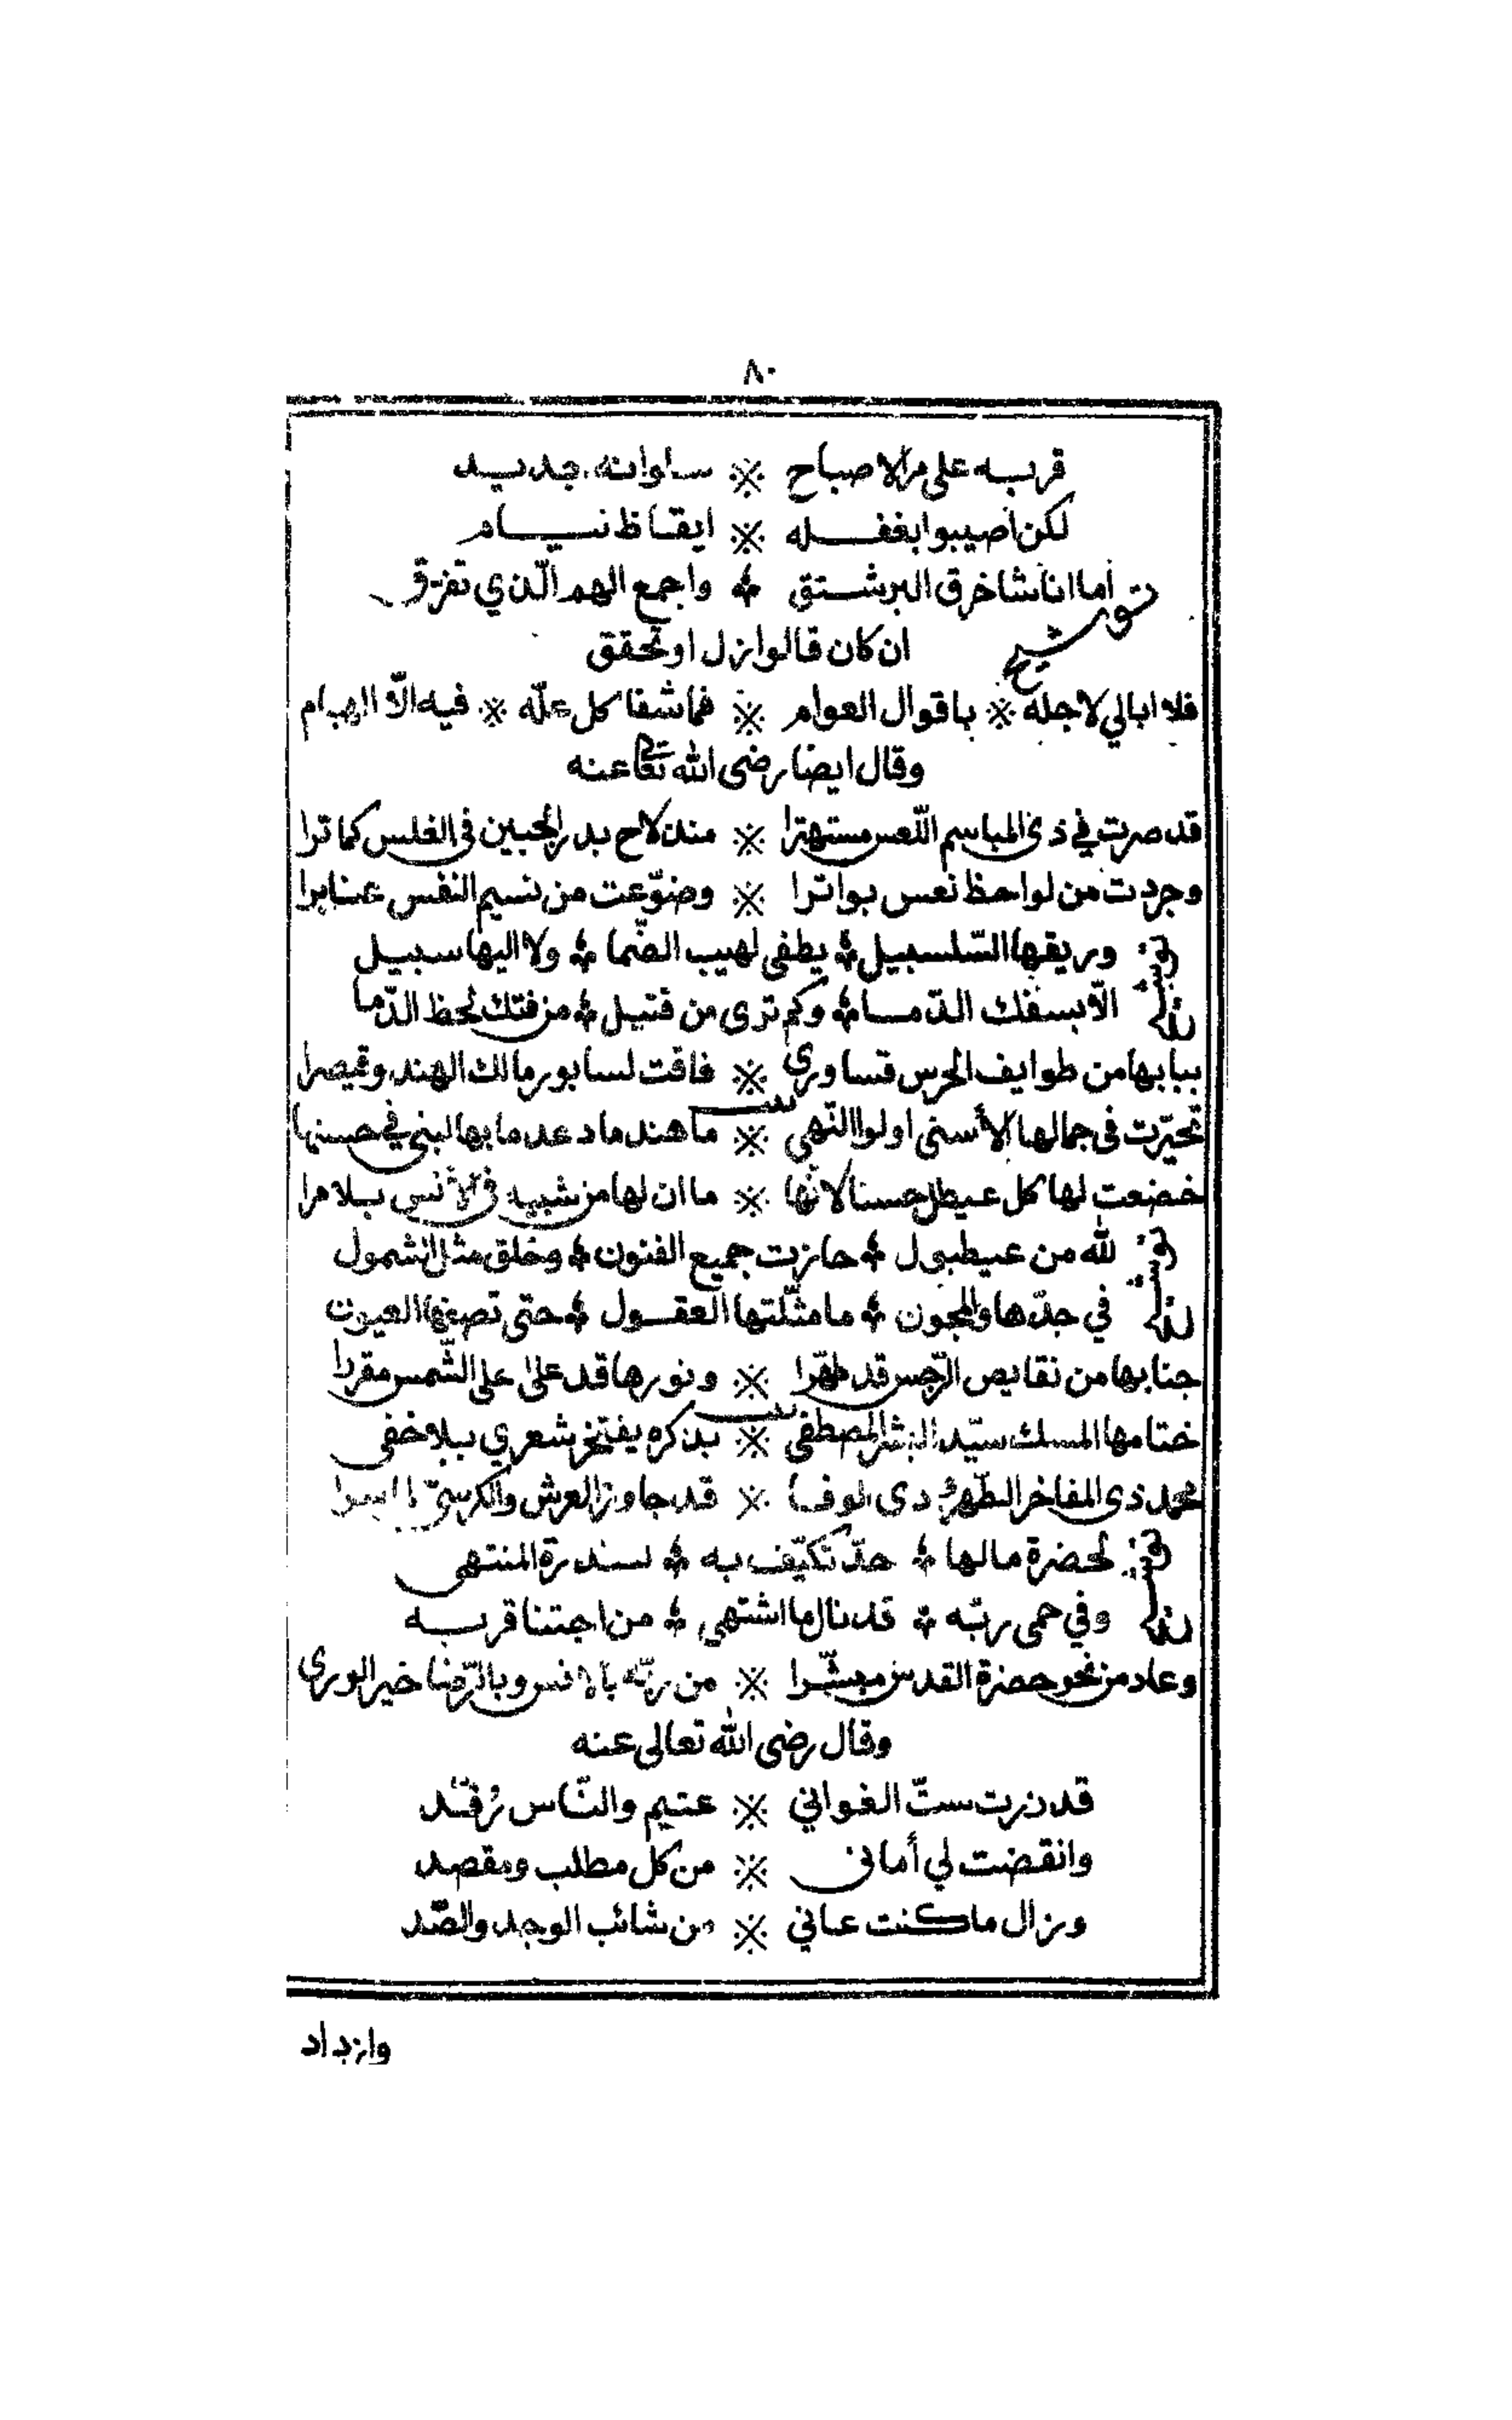 ٨٠
قربه على مر الاصباح ※ سلوانه جديد
لكن اصيبوا بغفله ※ ايقاظ نيام
توشيح اما انا نشا خرق البر شتق ※ واجمع الهم الّذي تفرق
ان كان قالوا زل او تحقق
فلا ابالي لاجله ※ باقوال العوام ※ فما شفا كل علّه ※ فيه الّا الهيام
وقال ايضا رضى الله تعالى عنه
قد صرت في ذى المباسم اللّعس مستهترا ※ منذ لاح بدر الجبين فى الغلس كما ترا
وجردت من لواحظ نعس بواترا ※ وضوّعت من نسيم النفس عنابرا
توشيح وريقها السّلسبيل ※ يطفى لهيب الضّما ※ ولا اليها سبيل
الّا بسفك الدّمسا ※ وكم ترى من قتيل ※ من فتك لحظ الدّما
ببابها من طوايف الحرس قساورى ※ فاقت لسابور مالك الهند وقيصرا
تحيّرت فى جمالها الأسنى اولوا النّهى ※ ما هند ما دعد ما بها لبنى في حسنها
خضعت لها كل عيطل حسنا لانّها ※ ما ان لها من شبيه فى الأنس بلا مرا
توشيح لله من عيطبول ※ حازت جميع الفنون ※ وخلق مثل الشمول
في جدّها والمجون ※ ما مثّلتها العقول ※ حتى تصفها العيون
جنابها من نقايص الرّجس قد طهّرا ※ ونورها قد على على الشّمس مقررا
ختامها المسك سيّد البشر المصطفى ※ بذكره يفتخر شعري بلا خفى
محمد ذى المفاخر الطّهر ذى الوفا ※ قد جاوز العرش والكرسيّ لما اسرا
توشيح لحضرة ما لها ※ حدّ تكيّف به ※ لسدرة المنتهى
وفي حمى ربّه ※ قد نال ما اشتهى ※ من اجتنا قربه
وعاد من نحو حضرة القدس مبشّرا ※ من ربّه بالانس وبالرّضا خير الورى
وقال رضى الله تعالى عنه
قد زرت ستّ الغواني ※ عتيم والنّاس رُقّد
وانقضت لي أمانى ※ من كل مطلب ومقصد
وزال ما كنت عاني ※ من شائب الوجد والصّد
وازداد